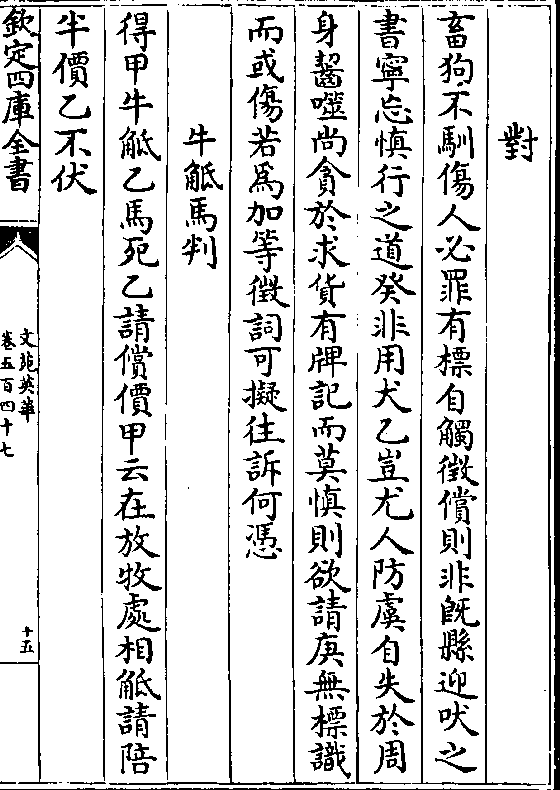 對
畜狗不馴傷人必罪有標自觸徵償則非旣懸迎吠之
書寧忘慎行之道癸非用犬乙豈尤人防虞自失於周
身齧噬尚貪於求貨有牌記而莫慎則欲請庚無標識
而或傷若爲加等徵詞可擬往訴何憑
牛觝馬判
得甲牛觝乙馬死乙請償價甲云在放牧處相觝請陪
半價乙不伏
欽定四庫全書
文苑英華
卷五百四十七
十五